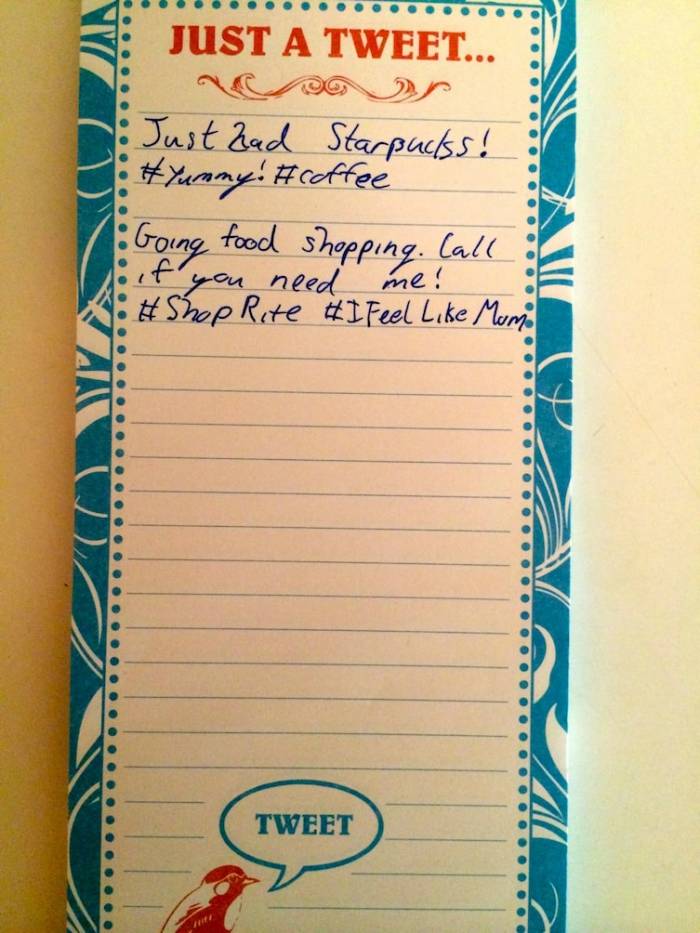 JUST A TWEET...
Just had Starbucks!
#Yummy! #coffee
Going food shopping. Call
if you need me!
#ShopRite #IFeelLikeMom
TWEET